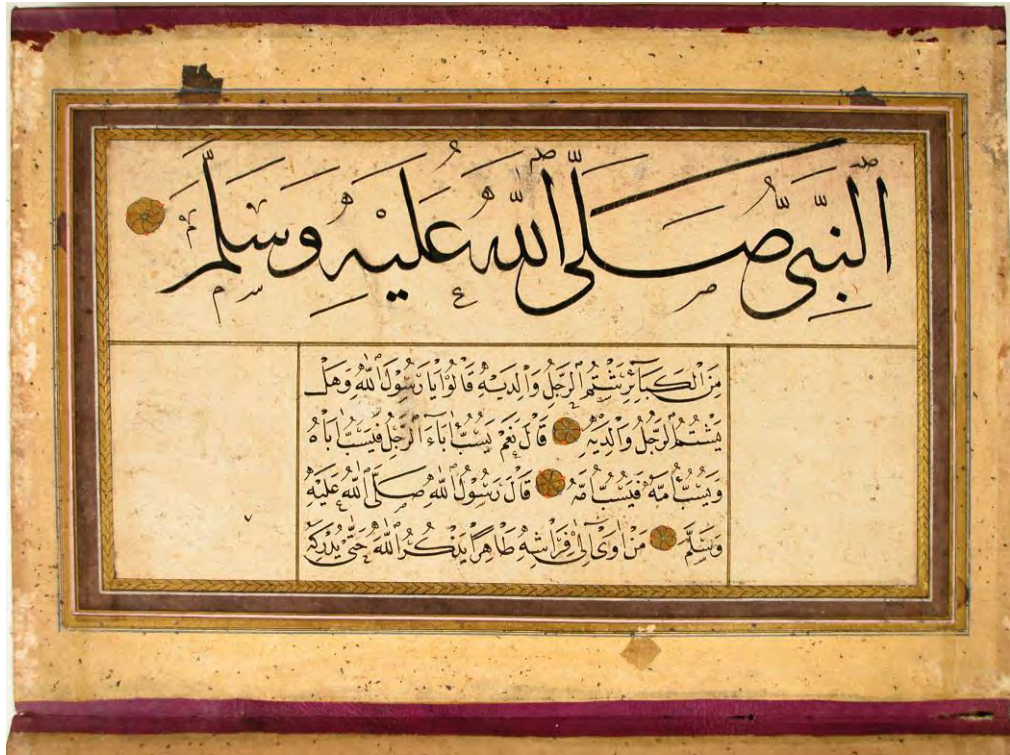 اَلنَّبِيِّ صَلَّى اللّٰهُ عَلَيْهِ وَسَلَّمَ
مِنَ الْكَبَآئِرِ شَتْمُ الرَّجُلِ وَالِدَيْهِ قَالُوا يَا رَسُولَ اللّٰهِ وَهَلْ
يَشْتُمُ الرَّجُلُ وَالِدَيْهِ قَالَ نَعَمْ يَسُبُّ اَبَاءَ الرَّجُلِ فَيَسُبُّ اَبَاهُ
وَيَسُبُّ اُمَّهُ فَيَسُبُّ اُمَّهُ قَالَ رَسُولُ اللّٰهِ صَلَّى اللّٰهُ عَلَيْهِ
وَسَلَّمَ مَنْ اَوٰى اِلٰى فِرَاشِهِ طَاهِرًا يَذْكُرُ اللّٰهَ حَتّٰى يُدْرِكَهُ